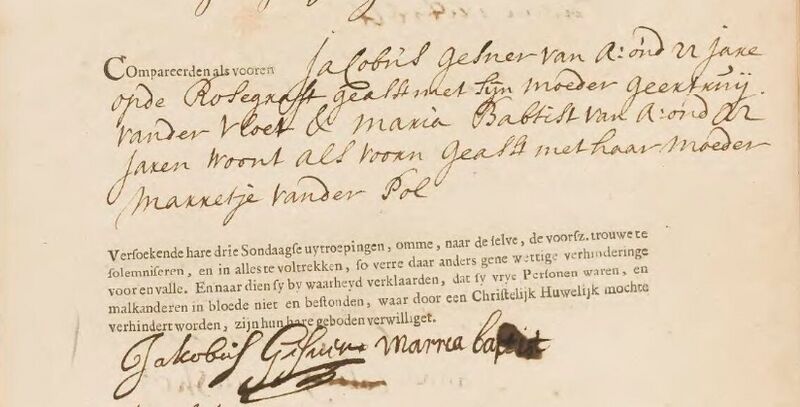 COmpareerden als vooren Jacobus Gesner van A: ond 22 jare
opde Rosegraft geasst met sijn moeder geertruij
vander Vloet & Maria Baptist van A: ond 22
jaren woont als voorn geasst met haar moeder
Marretje vander Pol
Versoekende hare drie Sondaagse uytroepingen, omme, naar de selve, de voorsz. trouwe te
solemniseren, en in alles te voltrekken, so verre daar anders gene wettige verhinderinge
voor en valle. En naar dien sy by waarheyd verklaarden, dat sy vrye Personen waren, en
malkanderen in bloede niet en bestonden, waar door een Christelijk Huwelijk mochte
verhindert worden, zijn hun hare geboden verwilliget.
Jakobus Gesner Marria baptist